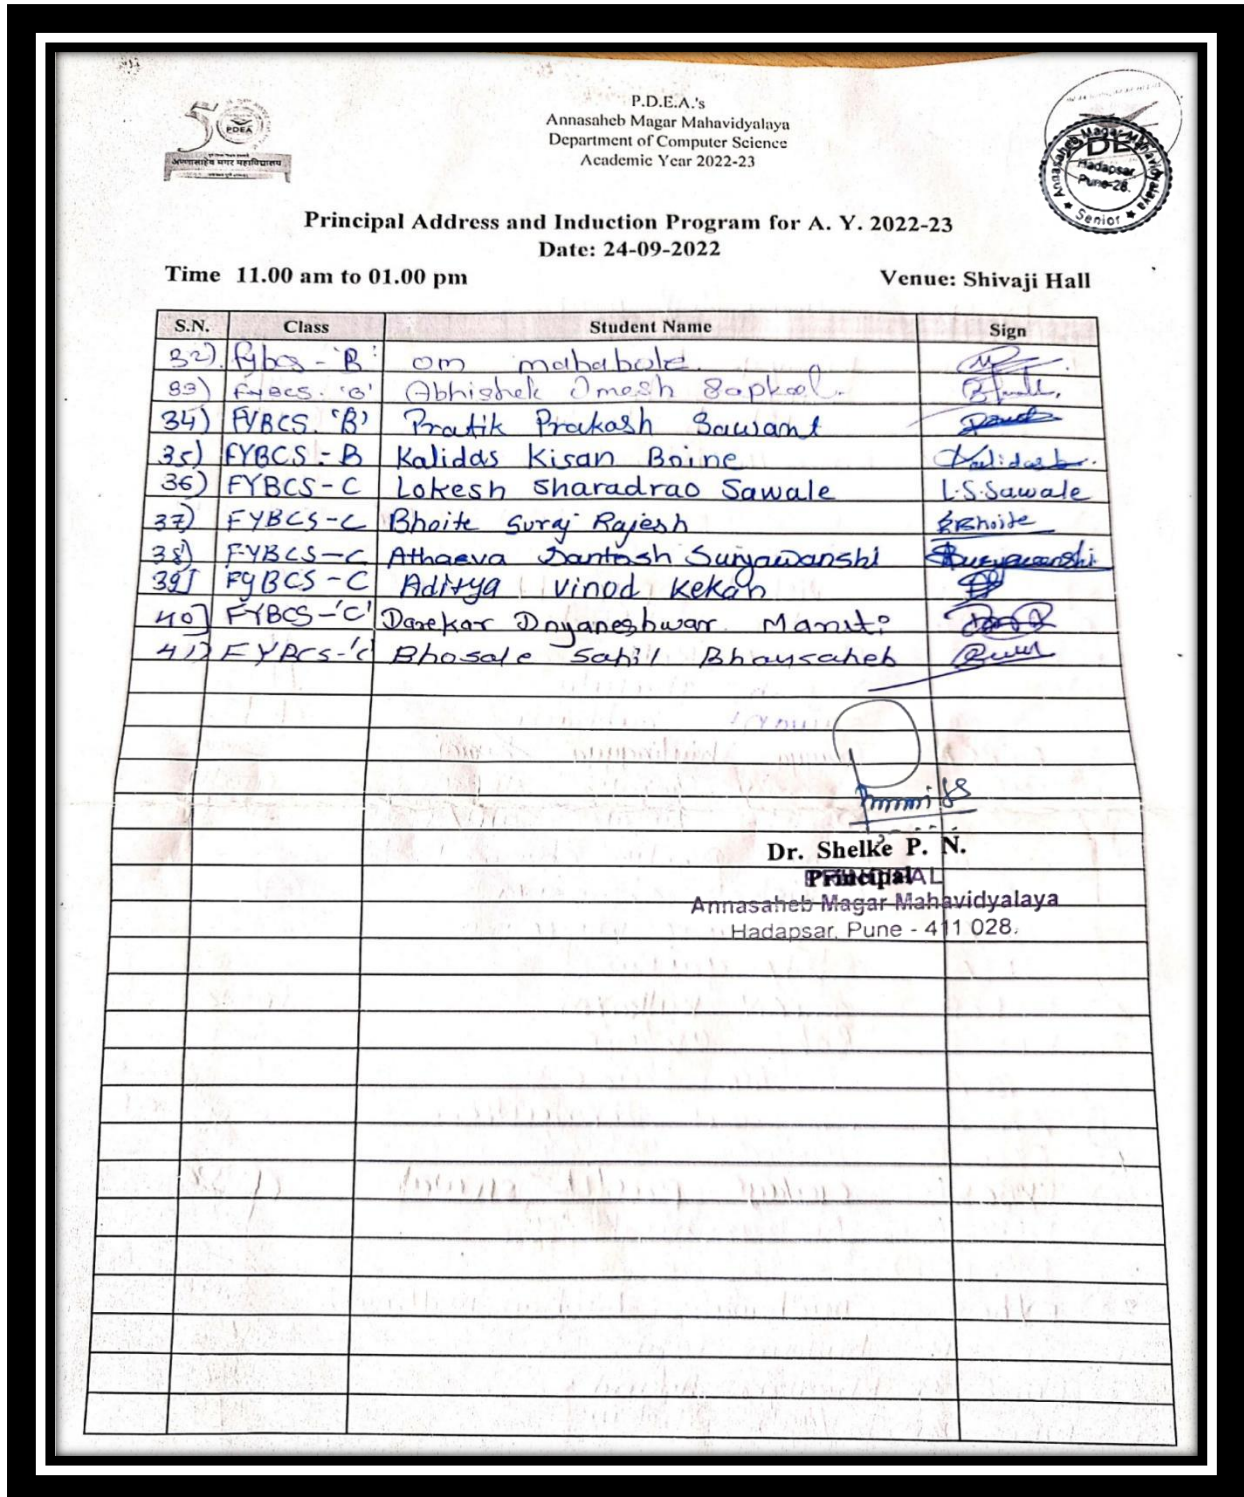 P.D.E.A.'s
Annasaheb Magar Mahavidyalaya
Department of Computer Science
Academic Year 2022-23
PDEA
अण्णासाहेब मगर महाविद्यालय
Annasaheb Magar Mahavidyalaya
PDE
Hadapsar,
Pune-28.
★ Senior ★
Principal Address and Induction Program for A. Y. 2022-23
Date: 24-09-2022
Time 11.00 am to 01.00 pm Venue: Shivaji Hall
S.N. Class Student Name Sign
32) fybcs - 'B' om mahabole
33) FyBCS. 'B' Abhishek Omesh Sapkal.
34) FYBCS. 'B' Pratik Prakash Sawant
35) FYBCS - B Kalidas Kisan Boine Kalidas
36) FYBCS - C Lokesh Sharadrao Sawale L.S.Sawale
37) FYBCS - C Bhoite Suraj Rajesh SRBhoite
38) FYBCS - C Atharva Santosh Suryawanshi Suryawanshi
39] FYBCS - C Aditya Vinod Kekan
40] FYBCS - 'C' Darekar Dnyaneshwar Maruti
41) FYBCS - 'C' Bhosale Sahil Bhausaheb
Dr. Shelke P. N.
Principal
PRINCIPAL
Annasaheb Magar Mahavidyalaya
Hadapsar, Pune - 411 028.